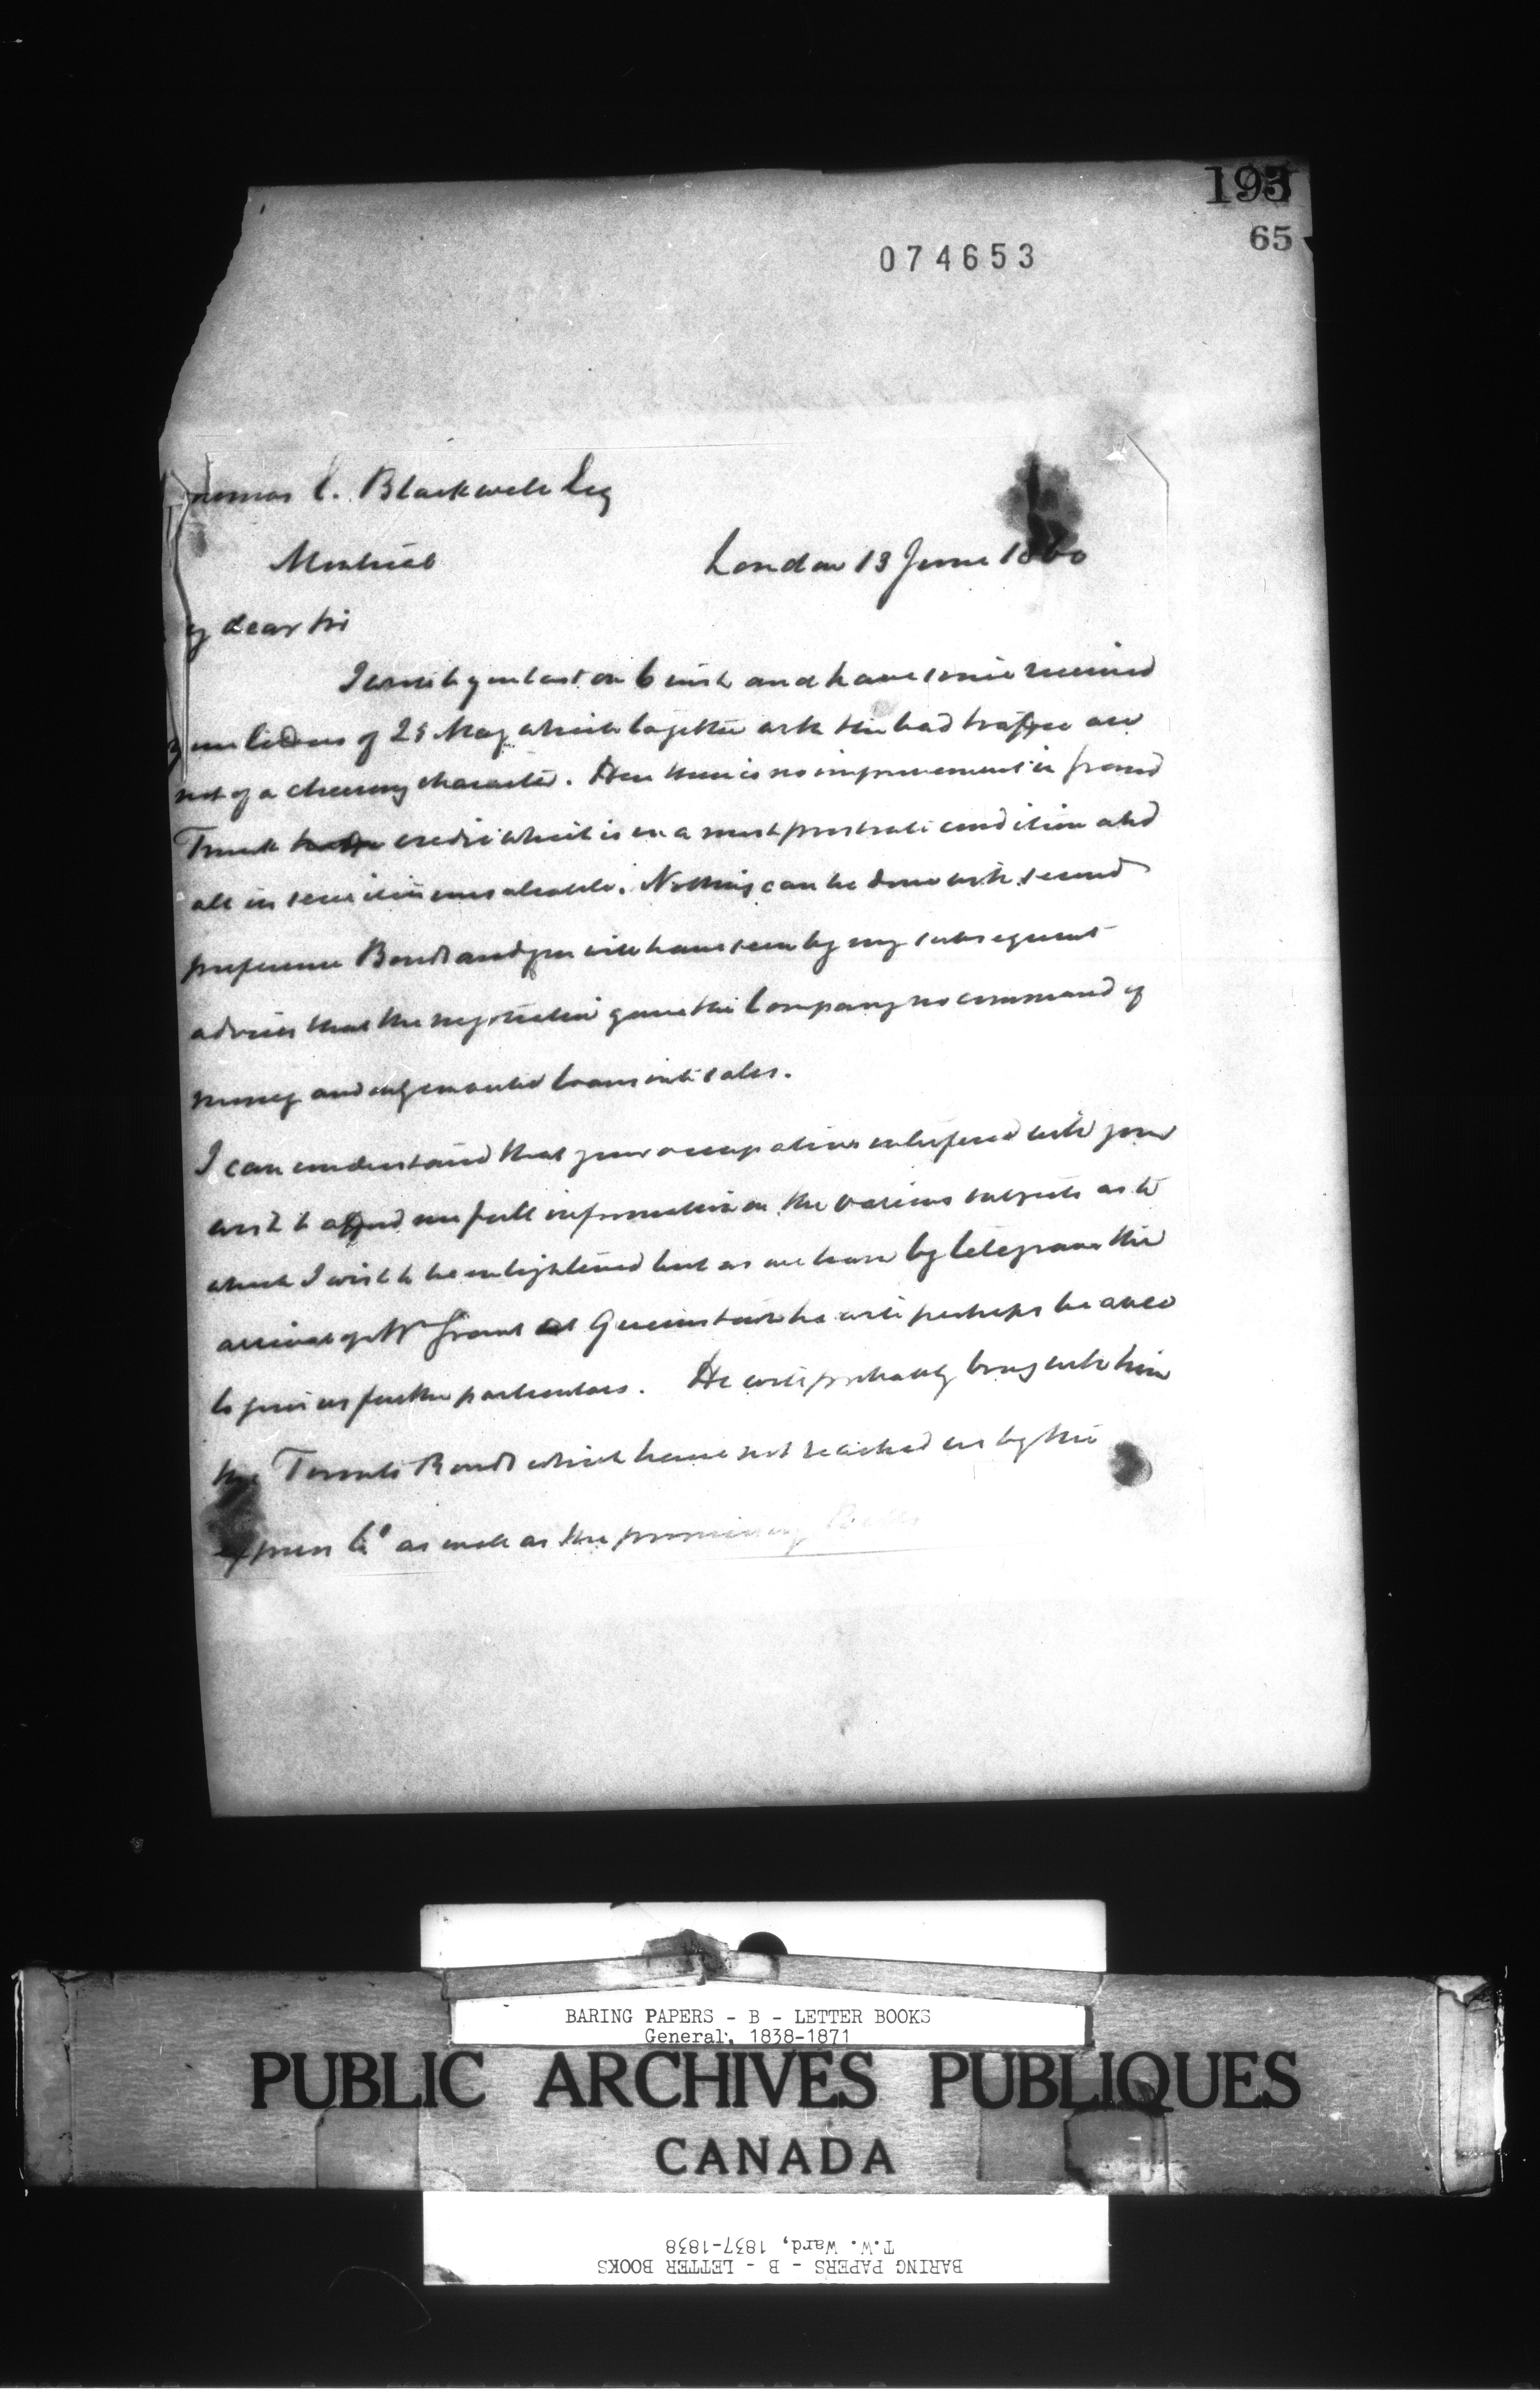 193
65
074653
Thomas E. Blackwell Esq
Montreal
London 13 June 1860
My dear Sir
I wrote you last on 6 inst and have since received
your letters of 25 May which together with the bad traffic are
not of a cheering character. Here there is no improvement in Grand
Trunk credit which is in a most prostrate condition and
all its securities unsaleable. Nothing can be done with second
preference Bonds and you will have seen by my subsequent
advices that the negotiation gave the Company no command of
money and only converted loans into sales.
I can understand that your occupations interfered with your
wish to afford me full information on the various subjects as to
which I wish to be enlightened but as we learn by telegram the
arrival of Mr Grant at Queenstown he will perhaps be able
to give us further particulars. He will probably bring with him
the Toronto Bonds which have not reached us by the
express Co as well as the promissory
BARING PAPERS - B - LETTER BOOKS
General, 1838-1871
PUBLIC ARCHIVES PUBLIQUES
CANADA
T.W. Ward, 1837-1838
BARING PAPERS - B - LETTER BOOKS